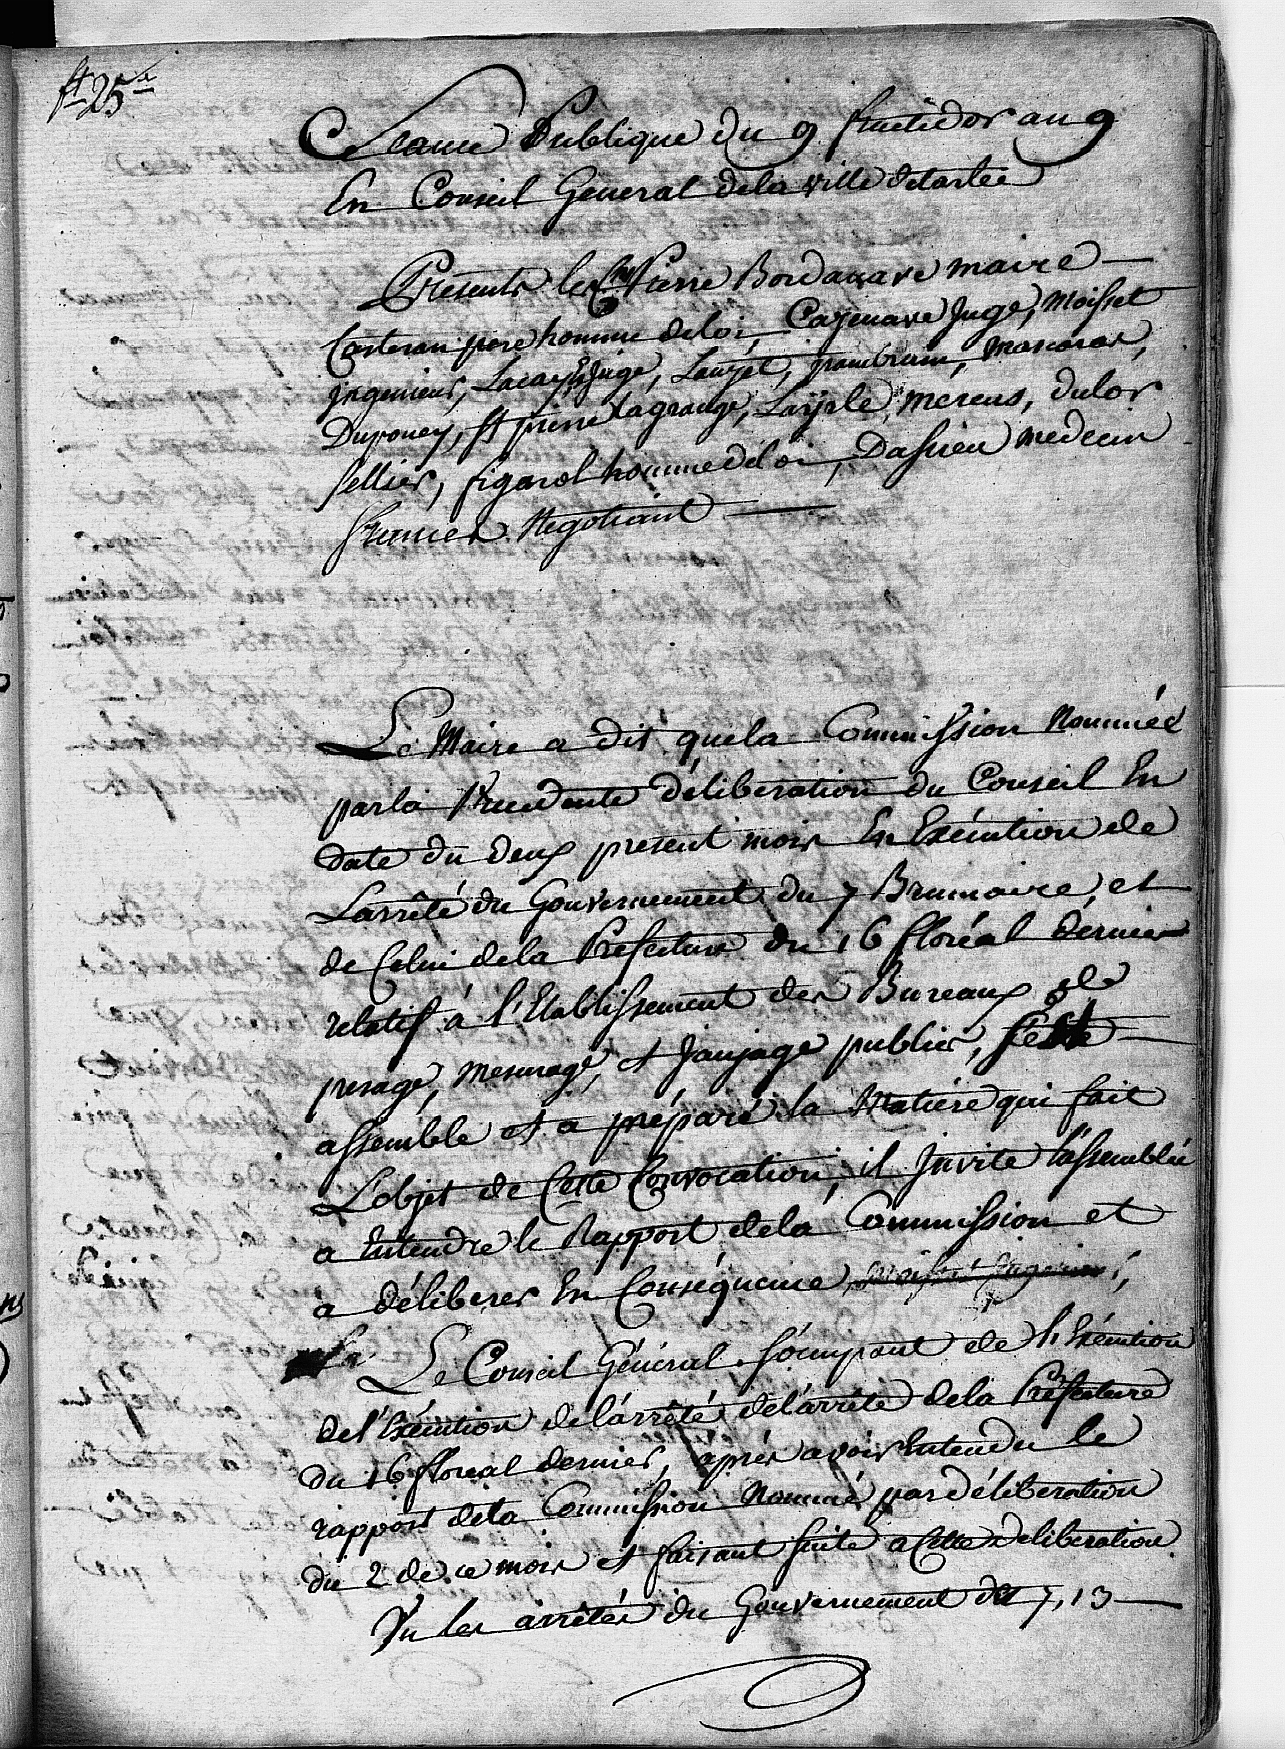 ft 25e
Seance Publique du 9 fructidor an 9
En Conseil General dela ville detarbes
Presents les Cns Pierre Bordanave maire
Casteran pere homme deloi, Cazenave juge, Moisset
jngenieur, Lacay juge, Lauzet,
DuPouey, st pierre lagrange, Layrle, méreus, dulor
sellier, figarol homme déloi, Dassieu medecin
Negotiant
Le Maire a dit quela Commission Nommée
parla Precedente déliberation du Conseil En
date du deux present mois En Exécution de
Larrêté du Gouvernement du 7 Brumaire, et
de Celui dela Prefecture du 16 floréal dernier
relatif à l'Etablissement des Bureaux de
pesage, mesurage, et jaujage publics, s'est
assemblé et a préparé la Matière qui fait
L'objet de Cette Convocation, il jnvite l'assemblée
a Entendre le Rapport dela Commission et
a déliberer En Conséquence
Le Conseil Général s'occupant de l'Exécution
del'Exécution delarrêté délarrêté dela Préfecture
du 16 floreal dernier, après avoir Entendu le
rapport dela Commission Nommé par déliberation
du 2 de ce mois et faisant suite a Cette deliberation
Vu les arrêtés du Gouvernement des 7, 13